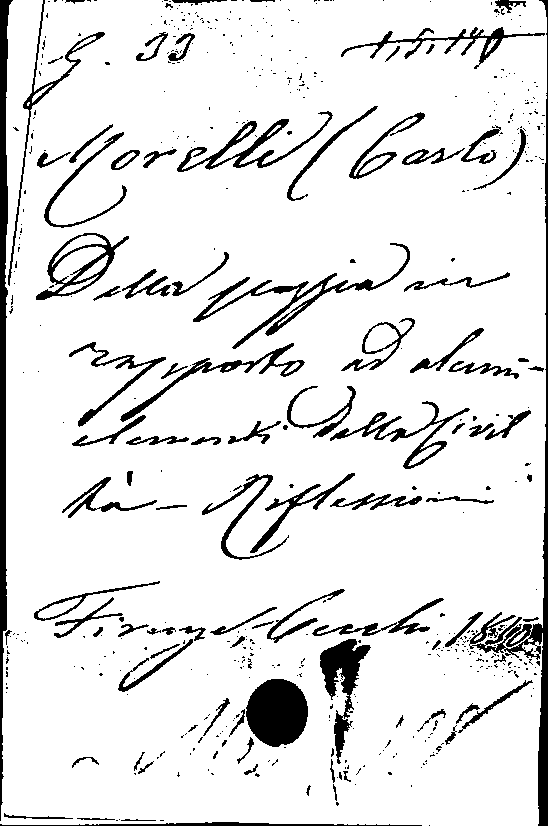 G. 33 1.5.140
Morelli (Carlo)
Della pazzia in
rapporto ad alcuni
elementi della Civil
tà - Riflessioni
Firenze, Cecchi, 18